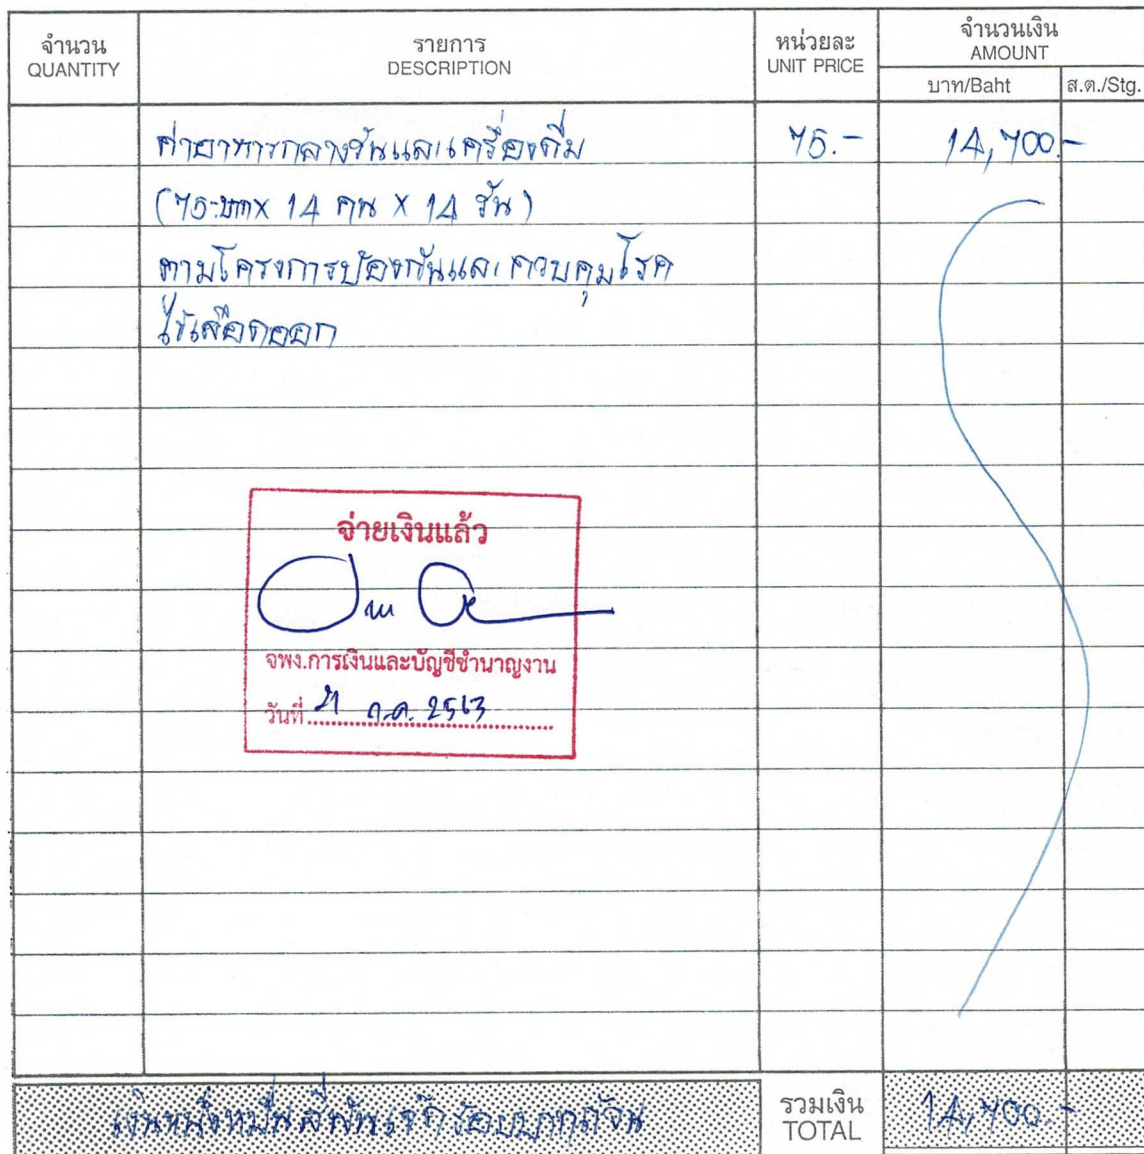 จำนวน
QUANTITY
รายการ
DESCRIPTION
หน่วยละ
UNIT PRICE
จำนวนเงิน
AMOUNT
บาท/Baht
ส.ต./Stg.
ค่าอาหารกลางวันและเครื่องดื่ม 75.- 14,700.-
(75 บาท x 14 คน x 14 วัน)
ตามโครงการป้องกันและควบคุมโรค
ไข้เลือดออก
จ่ายเงินแล้ว
จพง.การเงินและบัญชีชำนาญงาน
วันที่ 21 ก.ค. 2563
เงินหนึ่งหมื่นสี่พันเจ็ดร้อยบาทถ้วน
รวมเงิน
TOTAL
14,700.-